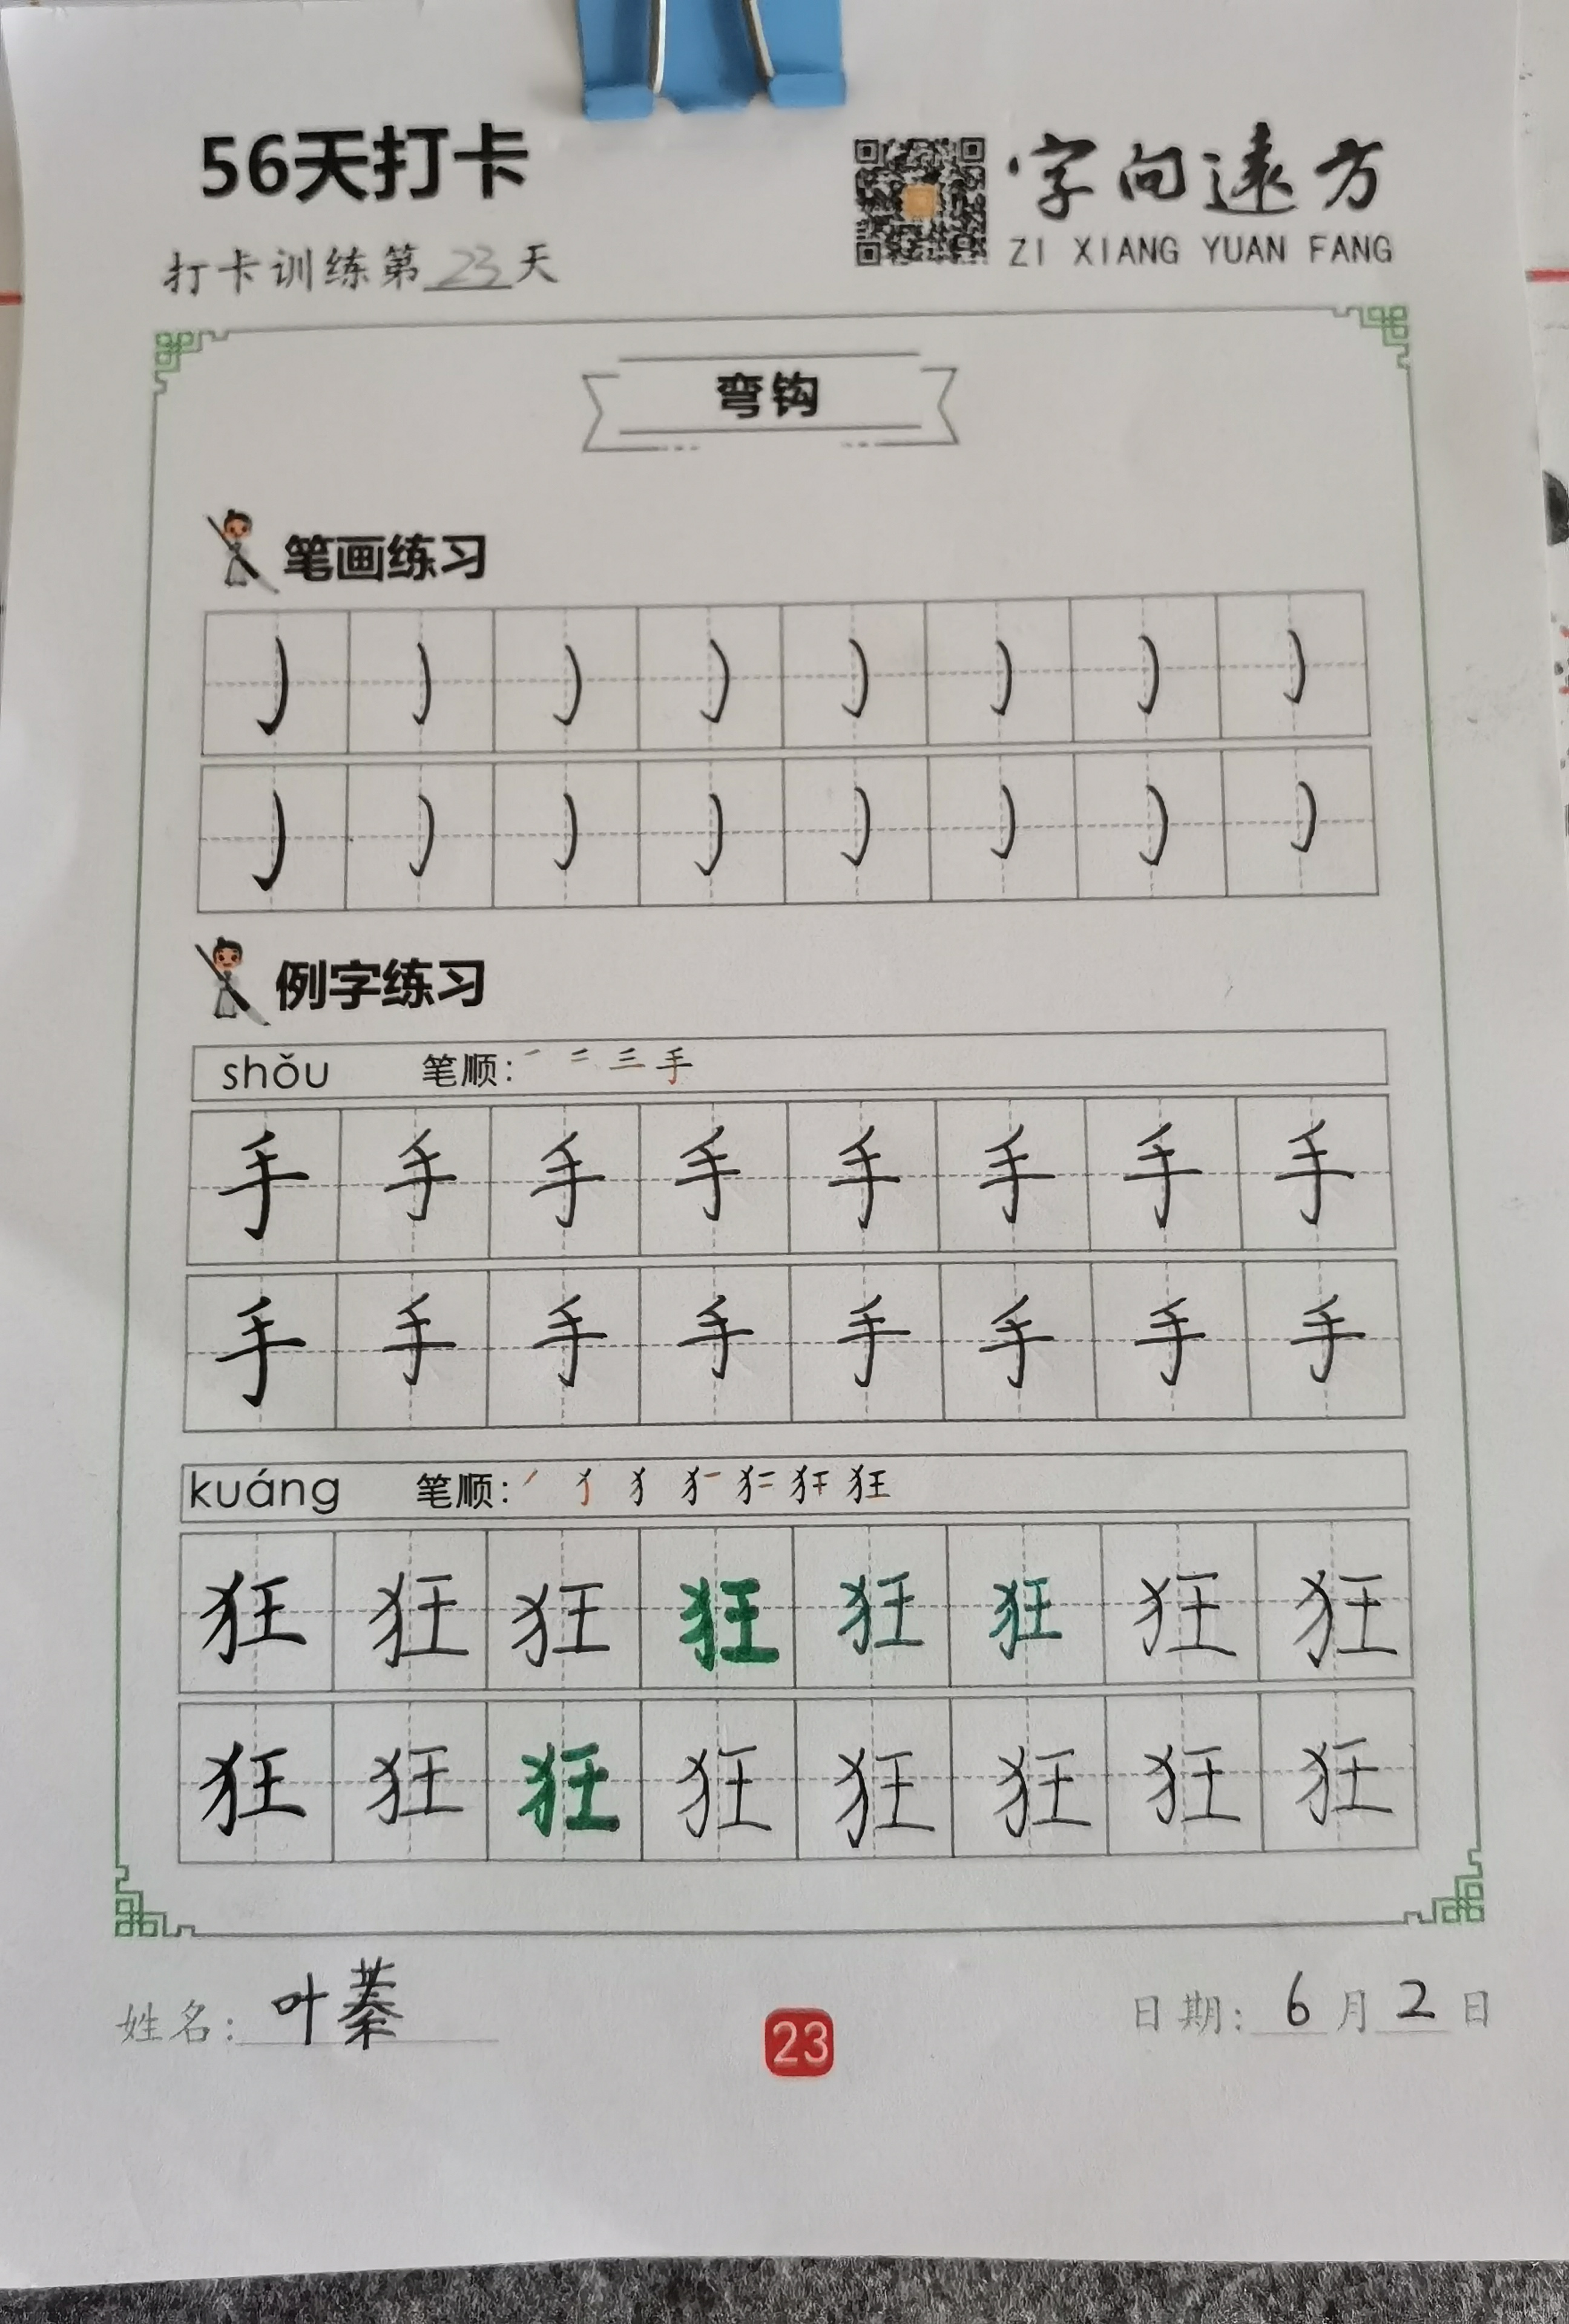 56天打卡
字向遠方
ZI XIANG YUAN FANG
打卡训练第23天
弯钩
笔画练习
㇁ ㇁ ㇁ ㇁ ㇁ ㇁ ㇁ ㇁
㇁ ㇁ ㇁ ㇁ ㇁ ㇁ ㇁ ㇁
例字练习
shǒu 笔顺: 手
手 手 手 手 手 手 手 手
手 手 手 手 手 手 手 手
kuáng 笔顺: 狂
狂 狂 狂 狂 狂 狂 狂 狂
狂 狂 狂 狂 狂 狂 狂 狂
姓名: 叶蓁
23
日期: 6月2日